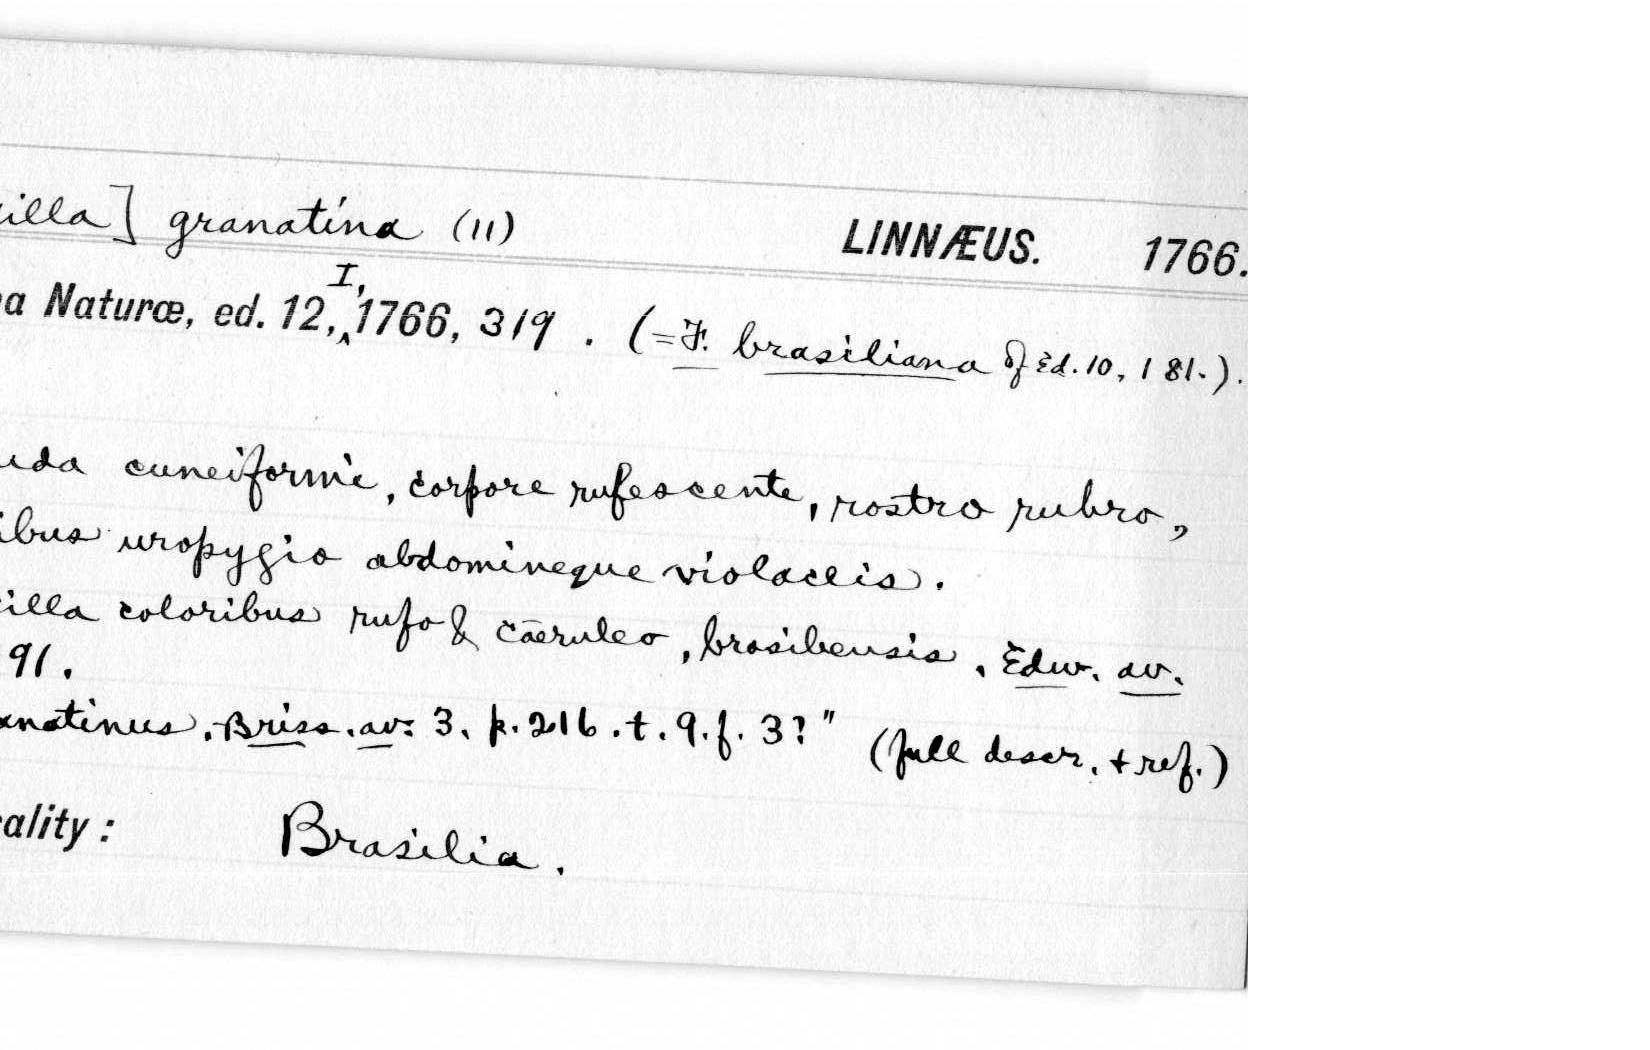 illa] granatina (11) LINNÆUS. 1766.
a Naturæ, ed. 12, I, 1766, 319. (=F. brasiliana of Ed. 10, 181.).
uda cuneiformi, corpore rufescente, rostro rubro,
ibus uropygio abdomineque violaceis.
illa coloribus rufo & cæruleo, brasiliensis. Edw. av.
91.
anatinus. Briss. av. 3. p. 216. t. 9. f. 3?" (full descr. + ref.)
ality: Brasilia.